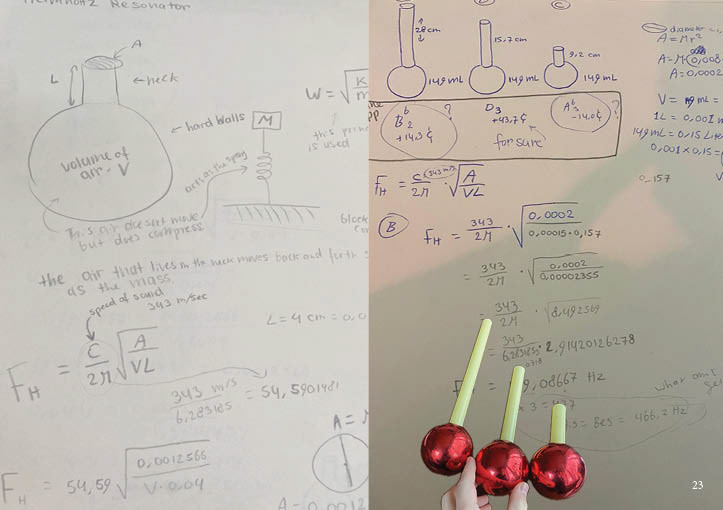 Helmholtz Resonator
A
L
neck
hard walls
volume of
air - V
acts as the spring
W = √K/m
M
this princ
is used
This air doesn't move
but does compress
block
the air that lives in the neck moves back and forth
as the mass.
speed of sound
343 m/sec
L = 4 cm = 0,0
F_H = C/2π √A/VL
343 m/s / 6,283185 = 54,5901481
A =
F_H = 54,59 √0,0012566/V·0,04
A = 0,0012
28 cm
15,7 cm
9,2 cm
149 mL
149 mL
149 mL
B♭2 ?
+14,3 ¢
D3
+43,7 ¢
for sure
A♭3 ?
-14,0 ¢
diameter
A = πr²
A = π(0,008
A = 0,0002
V = mL =
1L = 0,001 m
149 mL = 0,15 Lite
0,001 × 0,15 =
0,157
F_H = C/2π · √A/VL
343 m/s
B
F_H = 343/2π · √0,0002/0,00015·0,157
= 343/2π · √0,0002/0,00002355
= 343/2π · √8,492569
= 343/6,283185 · 2,91420126278
9,08667 Hz
what am I
× 3 =
= Bes = 466,2 Hz
23